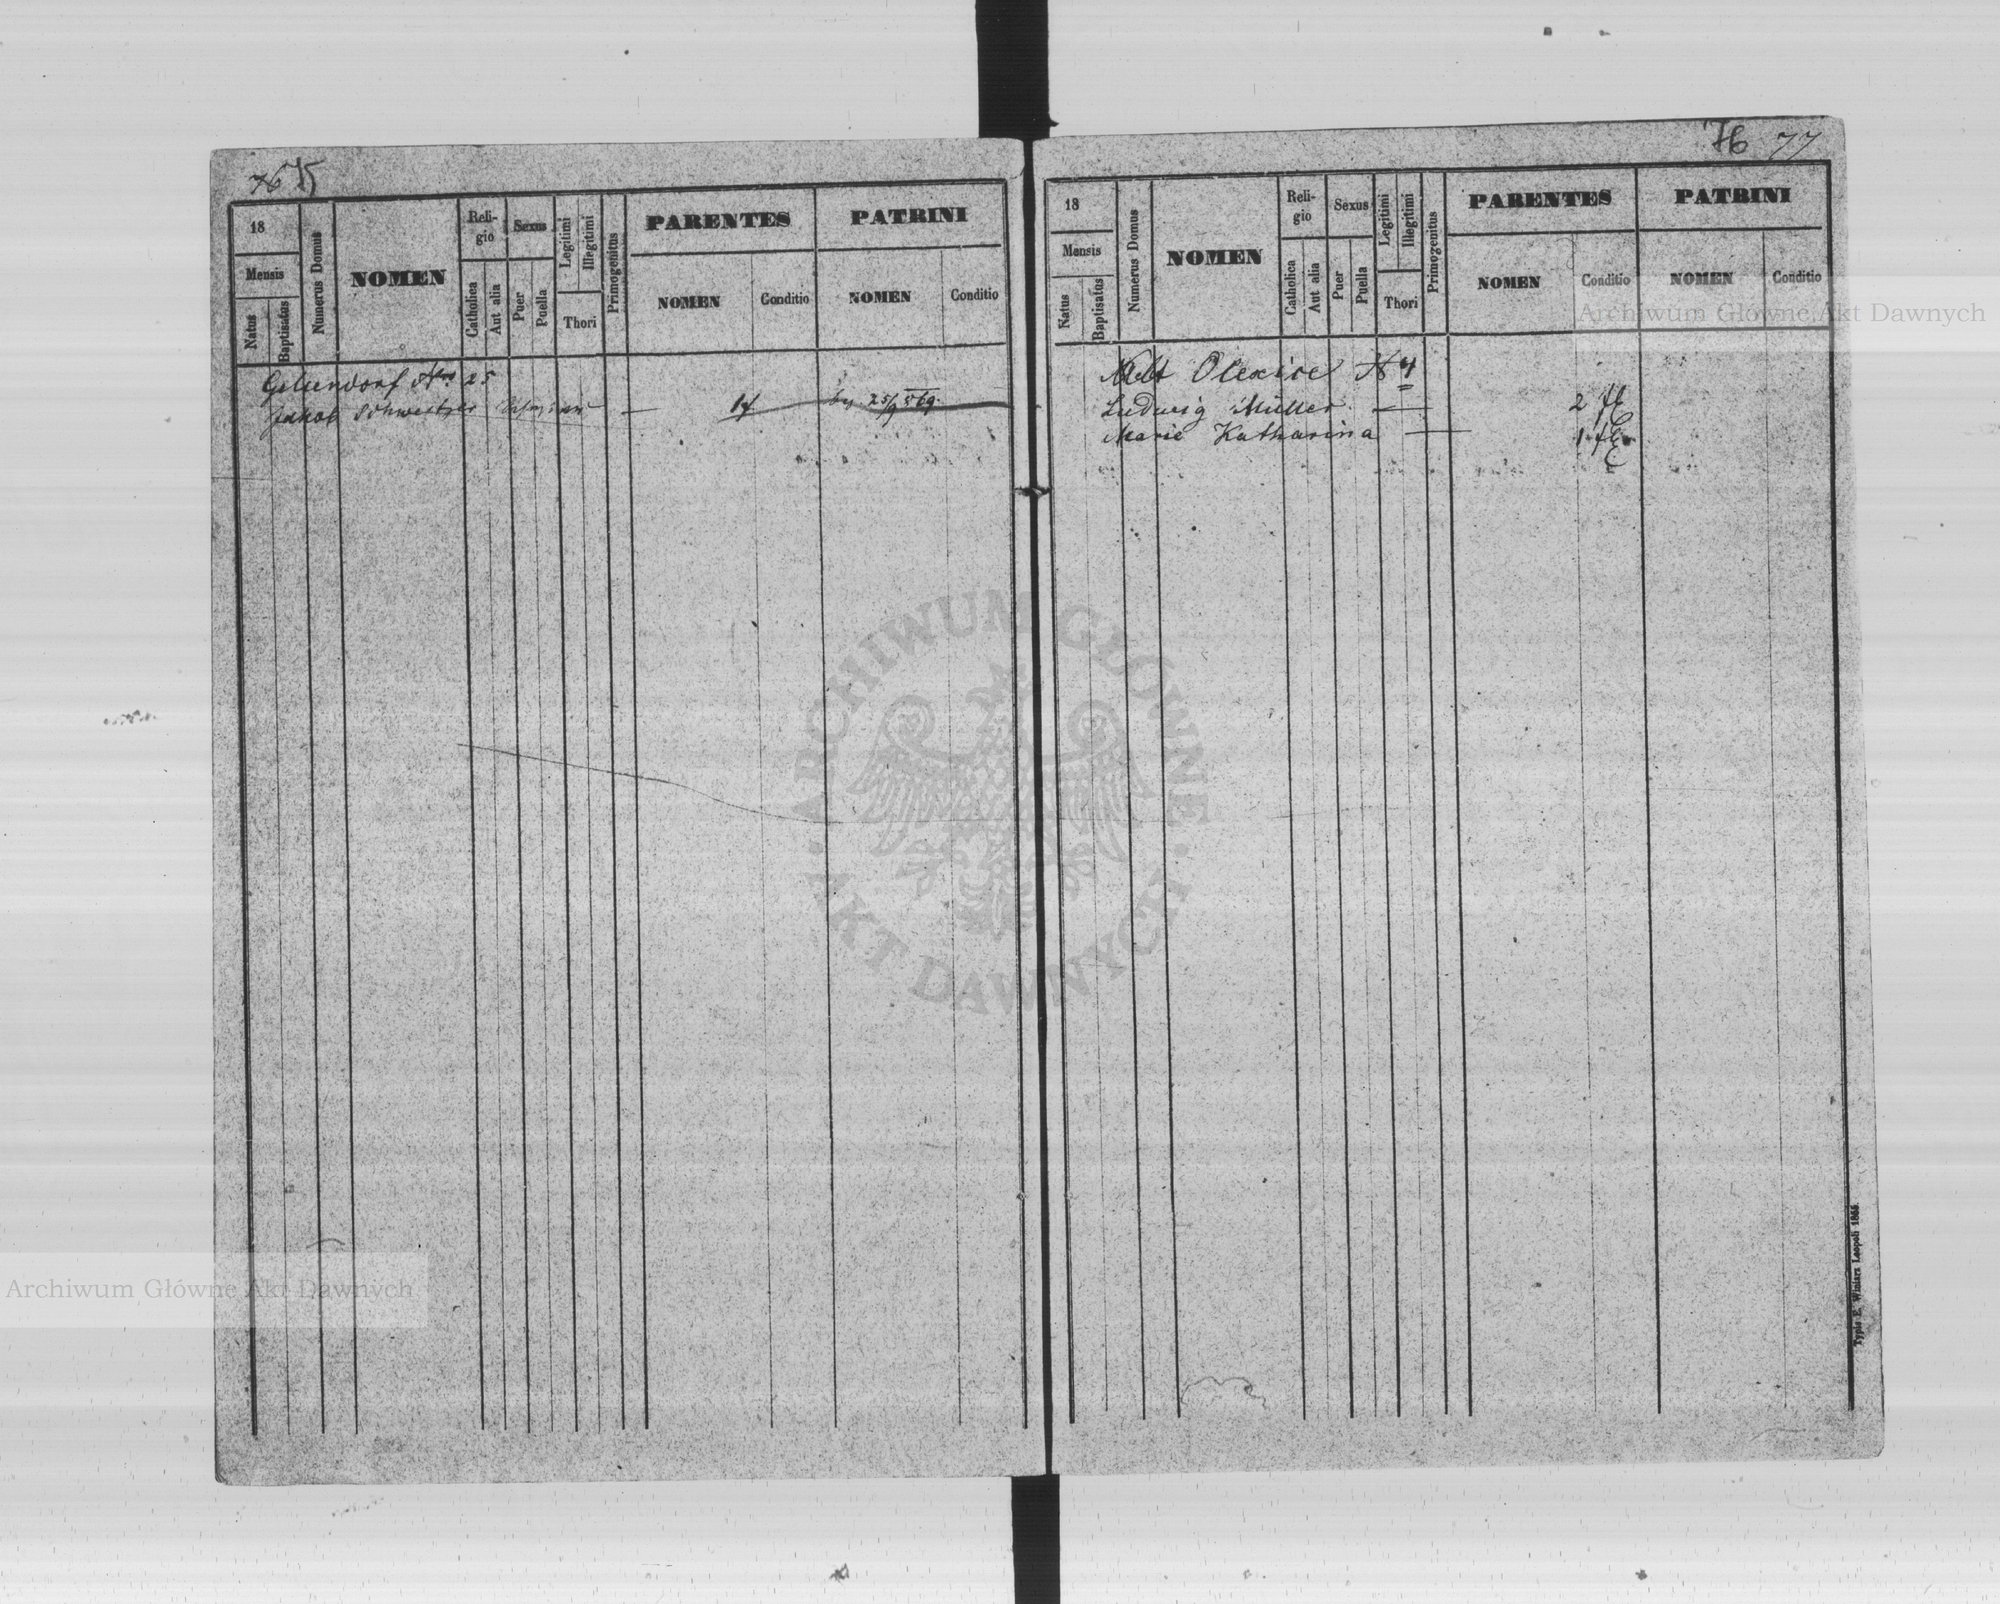 76 75
18
Mensis
Natus
Baptisatus
Numerus Domus
NOMEN
Reli-
gio
Catholica
Aut alia
Sexus
Puer
Puella
Legitimi
Illegitimi
Thori
Primogenitus
PARENTES
NOMEN
Conditio
PATRINI
NOMEN
Conditio
Gelsendorf Nro 25
Jakob Schweitzer
1 f 25/9 869
76 77
18
Mensis
Natus
Baptisatus
Numerus Domus
NOMEN
Reli-
gio
Catholica
Aut alia
Sexus
Puer
Puella
Legitimi
Illegitimi
Thori
Primogenitus
PARENTES
NOMEN
Conditio
PATRINI
NOMEN
Conditio
Olexice N 4
Ludwig Müller — 2 fl
Marie Katharina — 1 fl
Typis E. Winiarz Leopoli 1866.
Archiwum Główne Akt Dawnych
ARCHIWUM GŁÓWNE · AKT DAWNYCH ·
Archiwum Główne Akt Dawnych